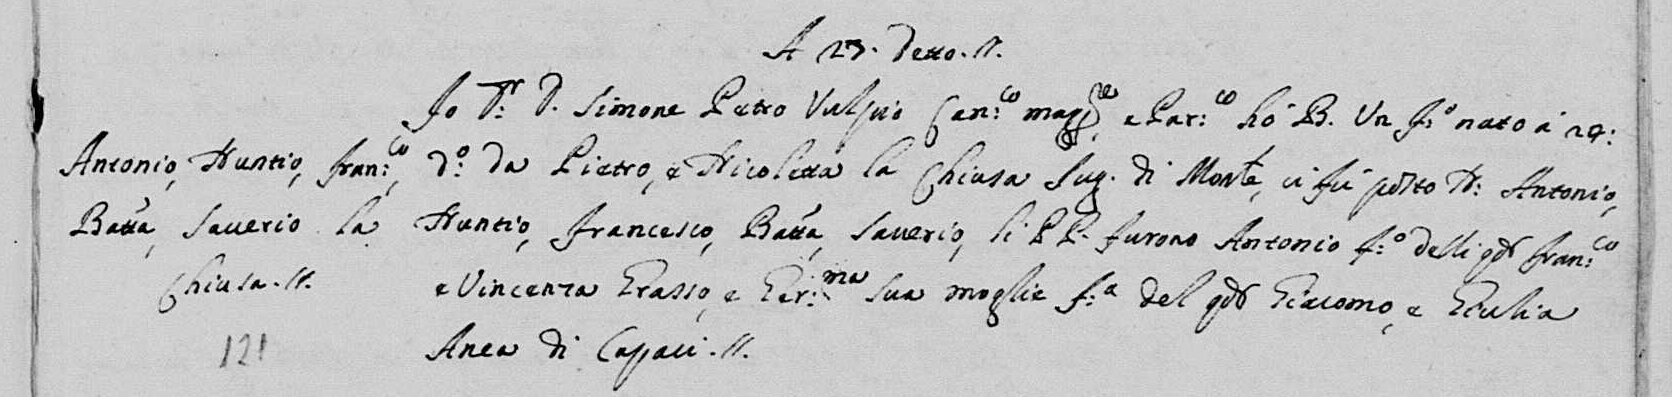 A 25. detto. //.
Io Dr. D. Simone Pietro Vulpio Can.co magg.e e Par.co hò B. Un f.o nato à 24:
Antonio, Nuntio, fran.co, d.o da Pietro, e Nicoletta la Chiusa Iug. di Monte, ci fù posto N: Antonio,
Batta, Saverio la Nuntio, francesco, Batta, Saverio, li P.P. furono Antonio f.o delli qd fran.co
Chiusa. //. e Vincenza Grasso, e Ger.ma sua moglie f.a del qd Giacomo, e Giulia
121 Anea di Capaci. //.